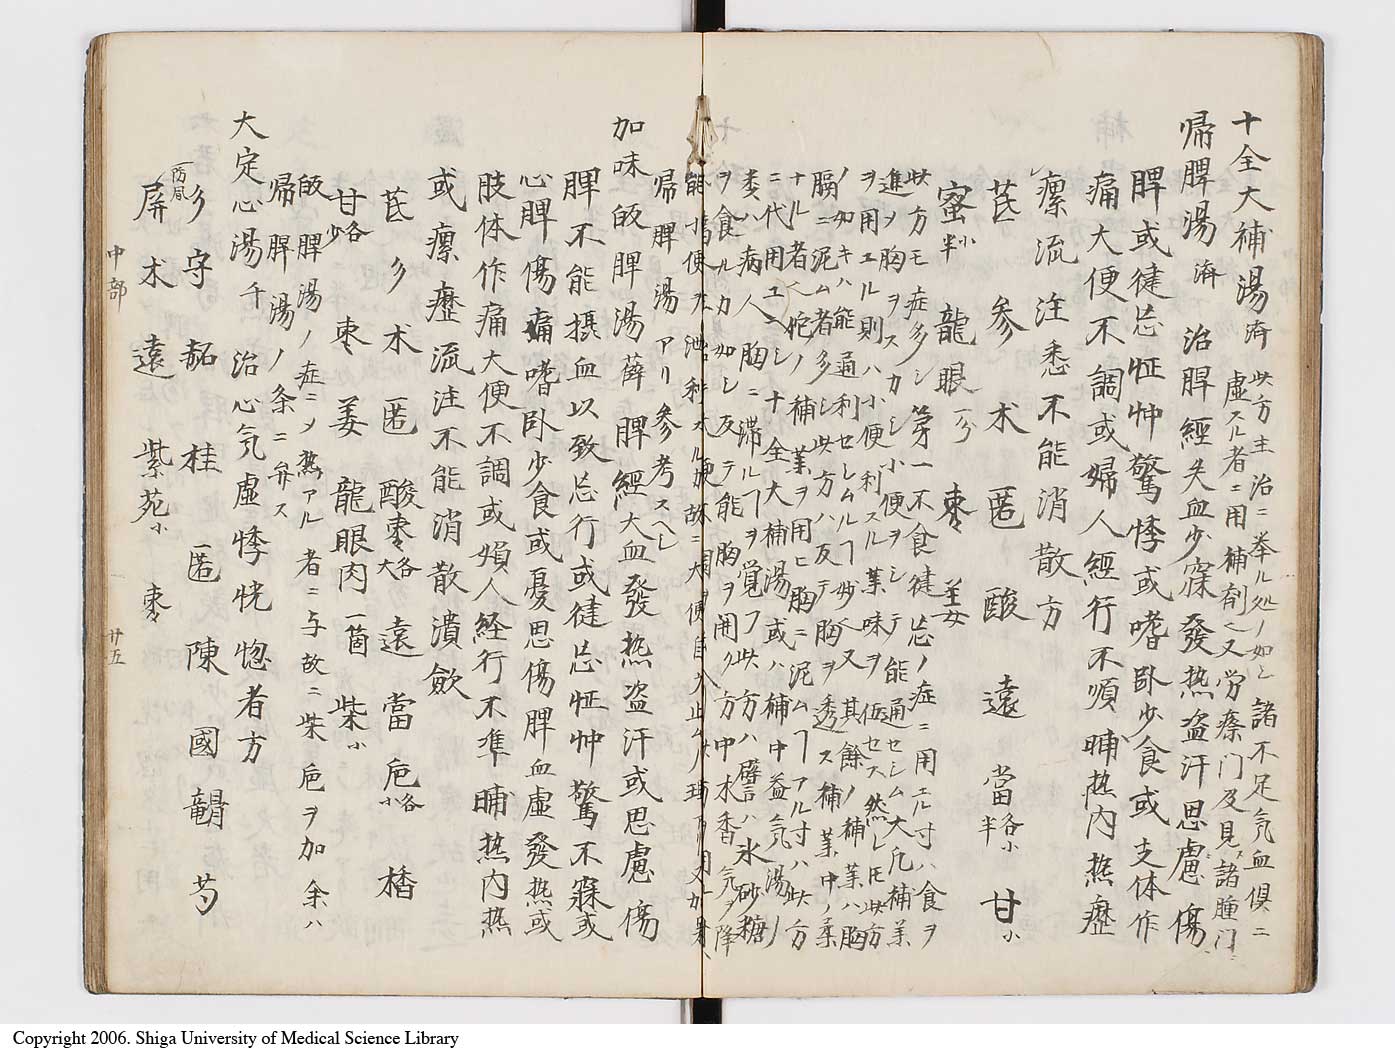 十全大補湯 済 此方主治ニ挙ル処ノ如シ諸不足気血倶ニ
虚スル者ニ用補剤也又労瘵門及見諸腫門
帰脾湯 済 治脾經失血少寐發热盗汗思慮傷
脾或徤忘怔忡驚悸或嗜卧少食或支体作
痛大便不調或婦人經行不順晡热内热瘂
瘰流注悉不能消散方
芪 参 朮 匿 酸 遠 當各小半 甘小
蜜小半 龍眼一ケ 棗 姜
此方モ症多シ第一不食徤忘ノ症ニ用ユル寸ハ食ヲ
進ヲ胸ヲスカシ小便ヲシテ能通セシム大凡補薬
ヲ用ユル則ハ小便利スル薬味ヲ伍セス然レ𪜈此方
ノ如キハ能通利セシムルヿ妙也又其餘ノ補薬ハ胸
膈ニ泥ム者多シ此方ハ反テ胸ヲ透ス補薬中ノ柔
ナル者也他ノ補薬ヲ用ヒ胸ニ泥ムヿアル寸ハ此方
ニ代用ユヘシ十全大補湯或ハ補中益気湯ノ
类ハ病人胸ニ滞ルヿヲ覚フ此方ハ譬ハ氷砂糖
ヲ食ルカ如シ反テ能胸ヲ開ク方中木香気ヲ降
帰脾湯アリ参考スヘシ
加味皈脾湯 薛 脾經大血發热盗汗或思慮傷
脾不能摂血以致忘行或徤忘怔忡驚不寐或
心脾傷痛嗜卧少食或憂思傷脾血虚發热或
肢体作痛大便不調或婦人経行不準晡热内热
或瘰癧流注不能消散潰歛
芪 彡 朮 匿 酸棗各大 遠 當 卮各小 楂
甘各少 棗 姜 龍眼肉一箇 柴小
皈脾湯ノ症ニメ熱アル者ニ与故ニ柴卮ヲ加余ハ
帰脾湯ノ条ニ弁ス
大定心湯 千 治心気虚悸恍惚者方
彡 守 䄷 桂 匿 陳 國 龍骨 芍
防風
屏 朮 遠 紫苑小 棗
中部
廿五
Copyright 2006. Shiga University of Medical Science Library